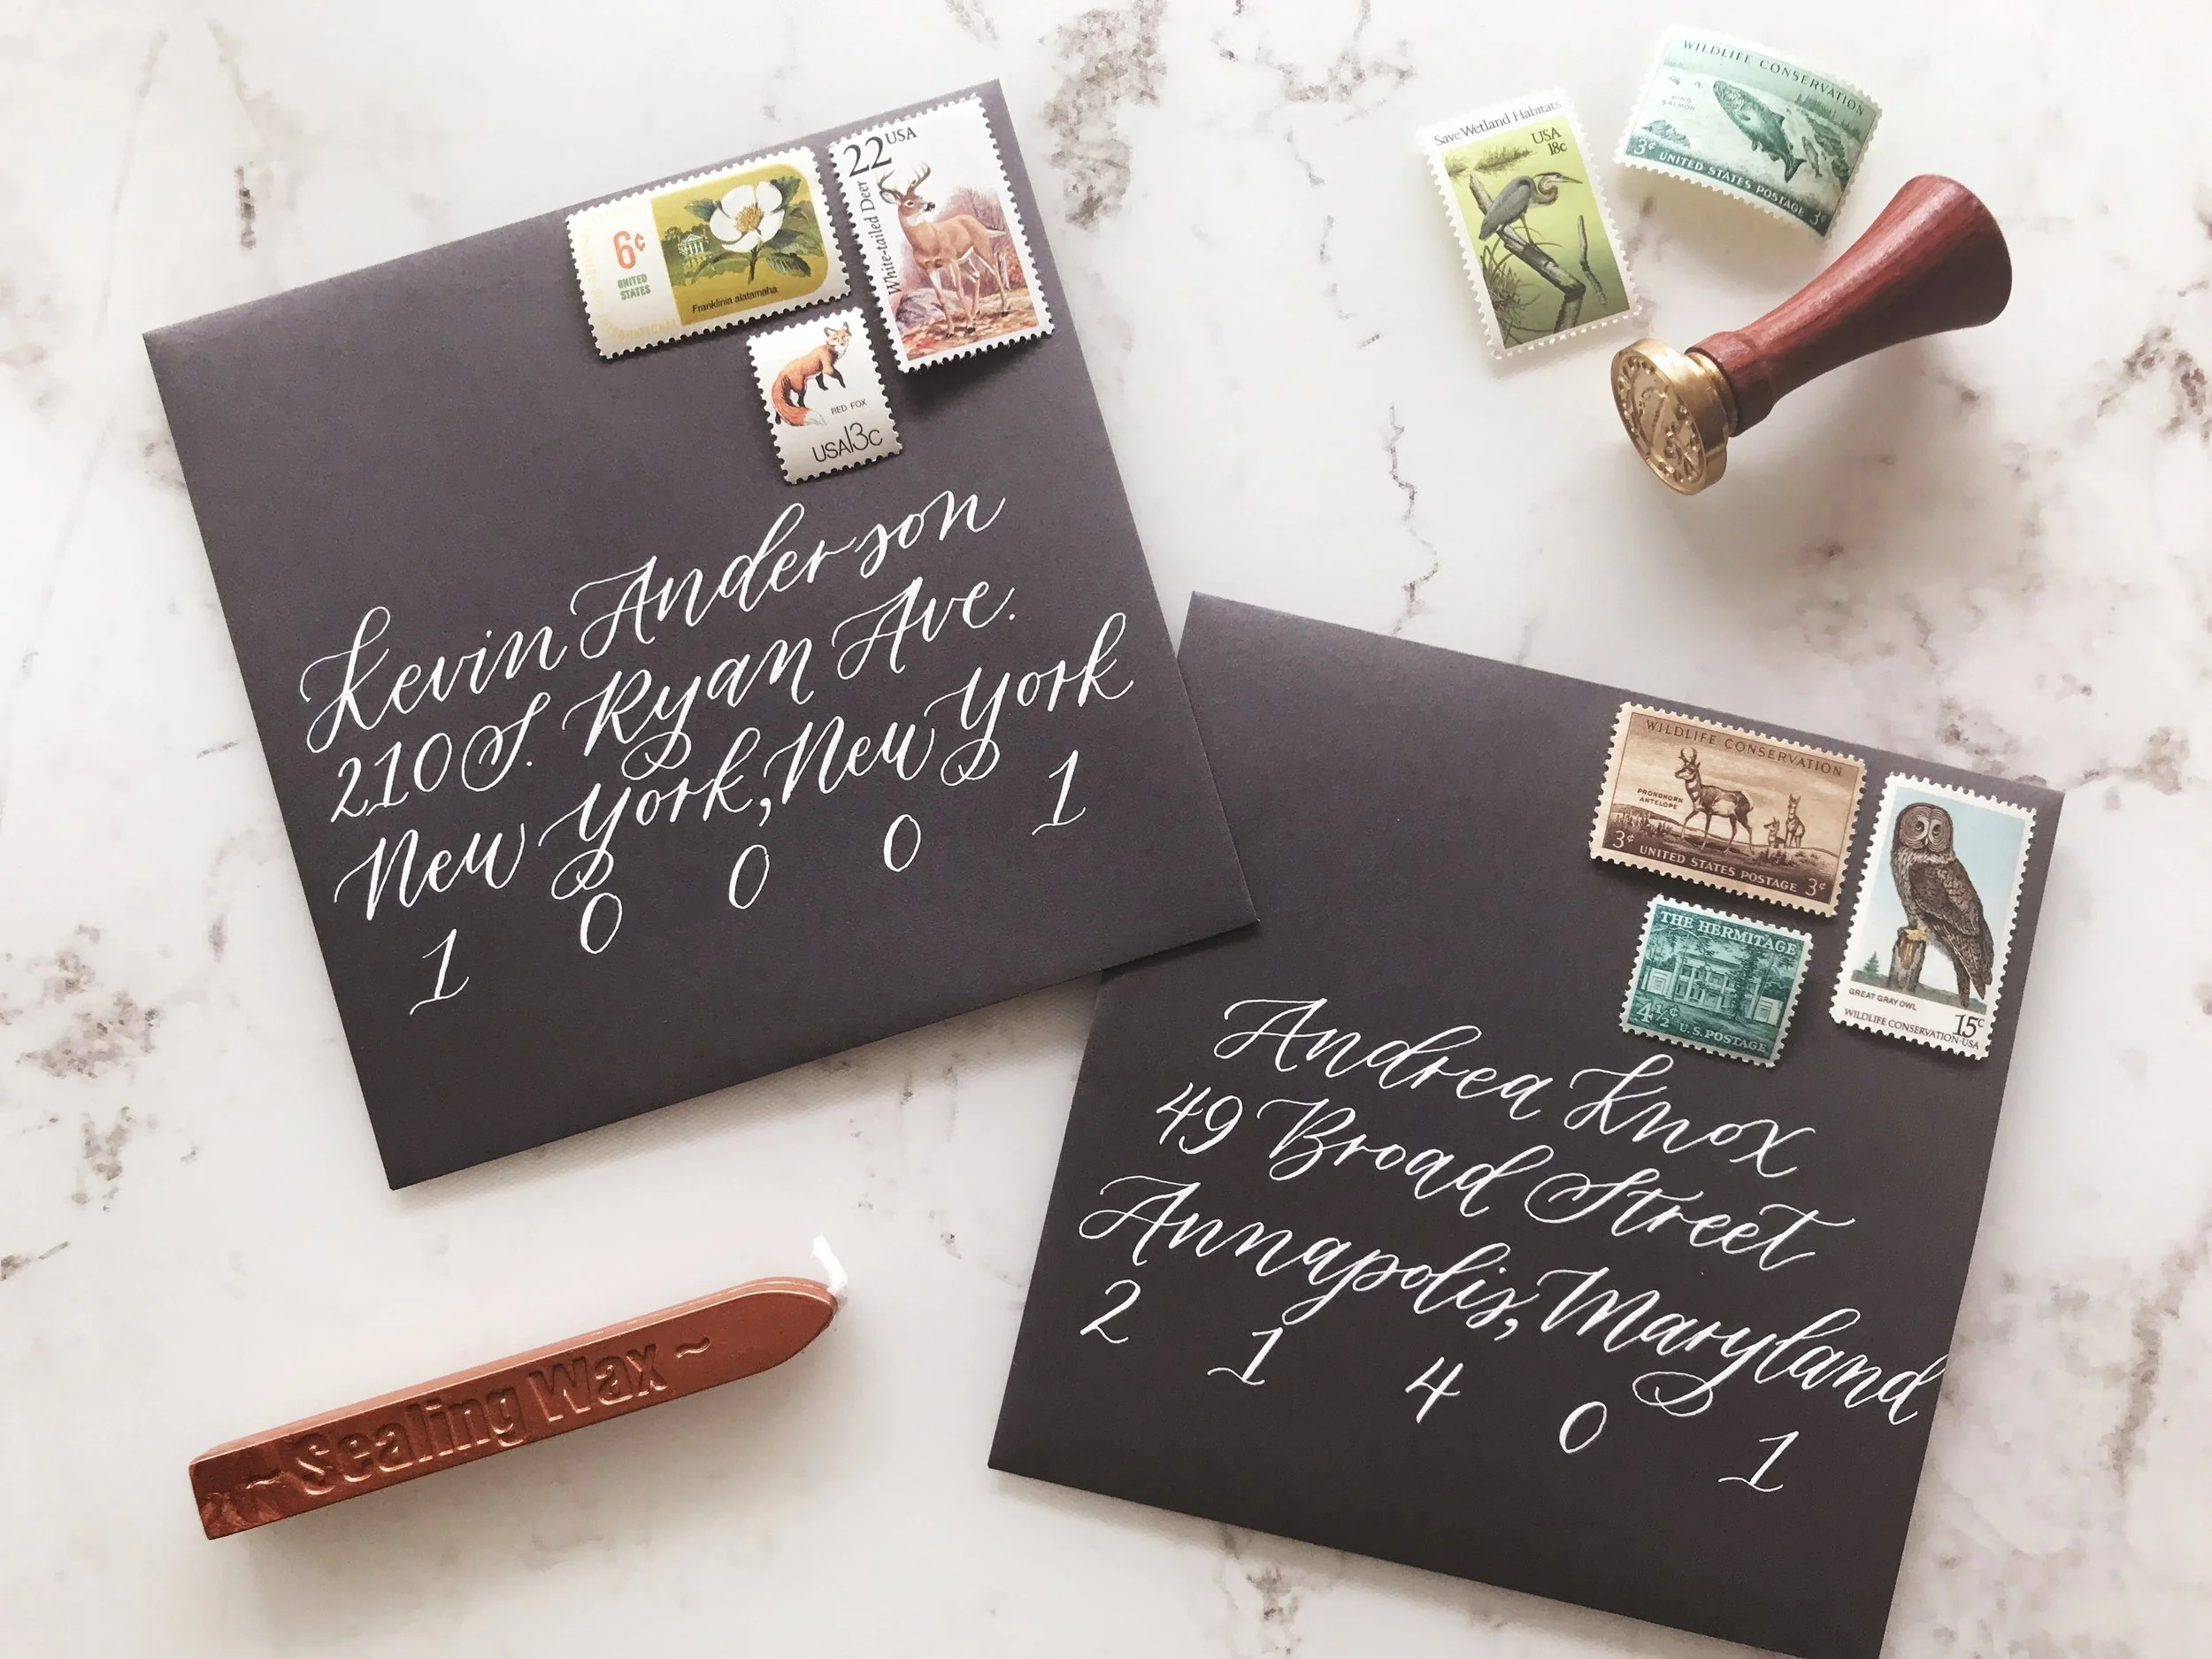 6¢
UNITED
STATES
Franklinia alatamaha
22 USA
White-tailed Deer
RED FOX
USA13c
Kevin Anderson
210 S. Ryan Ave.
New York, New York
1 0 0 0 1
Save Wetland Habitats
USA
18c
WILDLIFE CONSERVATION
KING
SALMON
3¢ UNITED STATES POSTAGE 3¢
WILDLIFE CONSERVATION
PRONGHORN
ANTELOPE
3¢ UNITED STATES POSTAGE 3¢
THE HERMITAGE
4½¢ U.S. POSTAGE
GREAT GRAY OWL
15c
WILDLIFE CONSERVATION·USA
Andrea Knox
49 Broad Street
Annapolis, Maryland
2 1 4 0 1
~ Sealing Wax ~